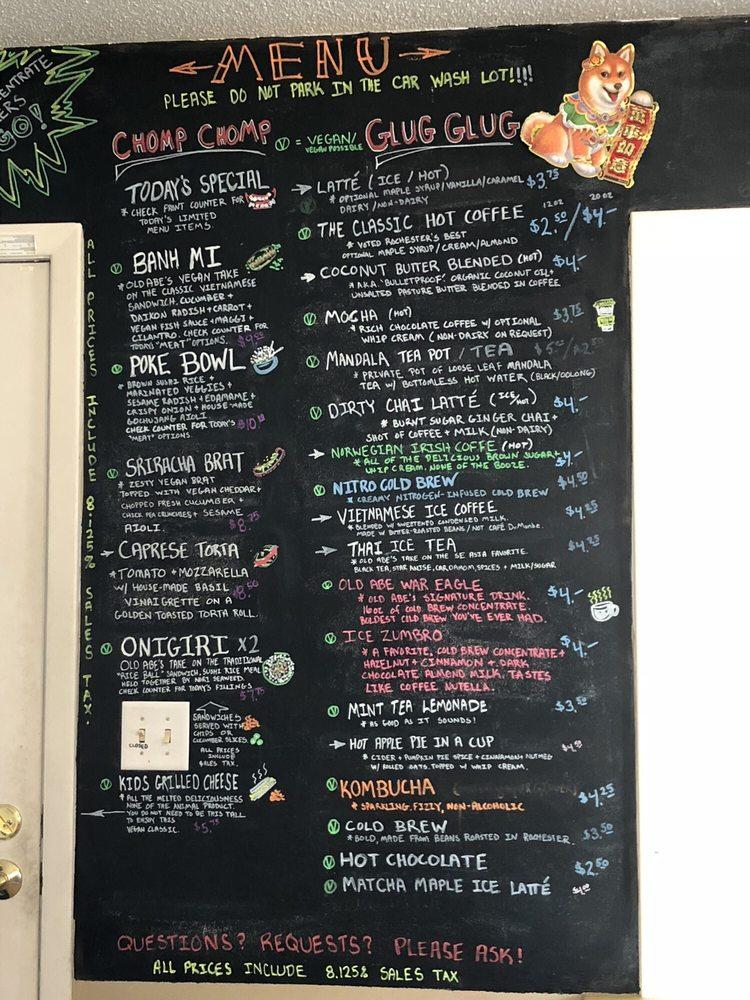 ENTRATE
ERS
GO!
MENU
PLEASE DO NOT PARK IN THE CAR WASH LOT!!!!
萬事如意
CHOMP CHOMP
Ⓥ = VEGAN/
VEGAN POSSIBLE
GLUG GLUG
ALL PRICES INCLUDE 8.125% SALES TAX.
TODAY'S SPECIAL
* CHECK FRONT COUNTER FOR
TODAY'S LIMITED
MENU ITEMS.
Ⓥ BANH MI
* OLD ABE'S VEGAN TAKE
ON THE CLASSIC VIETNAMESE
SANDWICH. CUCUMBER +
DAIKON RADISH + CARROT +
VEGAN FISH SAUCE + MAGGI +
CILANTRO. CHECK COUNTER FOR
TODAY'S "MEAT" OPTIONS.
Ⓥ POKE BOWL
* BROWN SUSHI RICE +
MARINATED VEGGIES +
SESAME RADISH + EDAMAME +
CRISPY ONION + HOUSE-MADE
GOCHUJANG AIOLI.
CHECK COUNTER FOR TODAY'S
"MEAT" OPTIONS.
Ⓥ SRIRACHA BRAT
* ZESTY VEGAN BRAT
TOPPED WITH VEGAN CHEDDAR +
CHOPPED FRESH CUCUMBER +
CHICK PEA CRUNCHIES + SESAME
AIOLI. $8.75
CAPRESE TORTA
* TOMATO + MOZZARELLA
W/ HOUSE-MADE BASIL $8.50
VINAIGRETTE ON A
GOLDEN TOASTED TORTA ROLL.
Ⓥ ONIGIRI X2
OLD ABE'S TAKE ON THE TRADITIONAL
"RICE BALL" SANDWICH. SUSHI RICE MEAL
HELD TOGETHER BY NORI SEAWEED.
CHECK COUNTER FOR TODAY'S FILLINGS
$7.75
CLOSED
SANDWICHES
SERVED WITH
CHIPS OR
CUCUMBER SLICES.
ALL PRICES
INCLUDE
SALES TAX.
Ⓥ KIDS GRILLED CHEESE
* ALL THE MELTED DELICIOUSNESS
NONE OF THE ANIMAL PRODUCT.
YOU DO NOT NEED TO BE THIS TALL
TO ENJOY THIS
VEGAN CLASSIC. $5.75
LATTÉ (ICE / HOT) $3.75
* OPTIONAL MAPLE SYRUP/VANILLA/CARAMEL
DAIRY / NON-DAIRY
12 OZ 20 OZ
Ⓥ THE CLASSIC HOT COFFEE $2.50/$4-
* VOTED ROCHESTER'S BEST
OPTIONAL MAPLE SYRUP/CREAM/ALMOND
COCONUT BUTTER BLENDED (HOT) $4-
* A.K.A. "BULLETPROOF". ORGANIC COCONUT OIL +
UNSALTED PASTURE BUTTER BLENDED IN COFFEE
Ⓥ MOCHA (HOT) $3.75
* RICH CHOCOLATE COFFEE W/ OPTIONAL
WHIP CREAM (NON-DAIRY ON REQUEST)
Ⓥ MANDALA TEA POT / TEA
* PRIVATE POT OF LOOSE LEAF MANDALA
TEA W/ BOTTOMLESS HOT WATER (BLACK/OOLONG)
Ⓥ DIRTY CHAI LATTÉ (ICE/HOT) $4.-
* BURNT SUGAR GINGER CHAI +
SHOT OF COFFEE + MILK (NON-DAIRY)
NORWEGIAN IRISH COFFE (HOT)
* ALL OF THE DELICIOUS BROWN SUGAR + $4.-
WHIP CREAM. NONE OF THE BOOZE.
Ⓥ NITRO COLD BREW $4.50
* CREAMY NITROGEN-INFUSED COLD BREW
VIETNAMESE ICE COFFEE $4.25
* BLENDED W/ SWEETENED CONDENSED MILK.
MADE W/ BUTTER-ROASTED BEANS / NOT CAFÉ DU MONDE.
THAI ICE TEA $4.25
* OLD ABE'S TAKE ON THE SE ASIA FAVORITE.
BLACK TEA, STAR ANISE, CARDAMOM, SPICES + MILK/SUGAR
Ⓥ OLD ABE WAR EAGLE $4.-
* OLD ABE'S SIGNATURE DRINK.
16oz OF COLD BREW CONCENTRATE.
BOLDEST COLD BREW YOU'VE EVER HAD.
Ⓥ ICE ZUMBRO $4.-
* A FAVORITE, COLD BREW CONCENTRATE +
HAZELNUT + CINNAMON + DARK
CHOCOLATE ALMOND MILK. TASTES
LIKE COFFEE NUTELLA.
Ⓥ MINT TEA LEMONADE $3.50
* AS GOOD AS IT SOUNDS!
HOT APPLE PIE IN A CUP
* CIDER + PUMPKIN PIE SPICE + CINNAMON + NUTMEG
W/ ROLLED OATS. TOPPED W/ WHIP CREAM.
Ⓥ KOMBUCHA $4.25
* SPARKLING, FIZZY, NON-ALCOHOLIC
Ⓥ COLD BREW $3.50
* BOLD, MADE FROM BEANS ROASTED IN ROCHESTER.
Ⓥ HOT CHOCOLATE $2.50
Ⓥ MATCHA MAPLE ICE LATTÉ $4.00
QUESTIONS? REQUESTS? PLEASE ASK!
ALL PRICES INCLUDE 8.125% SALES TAX